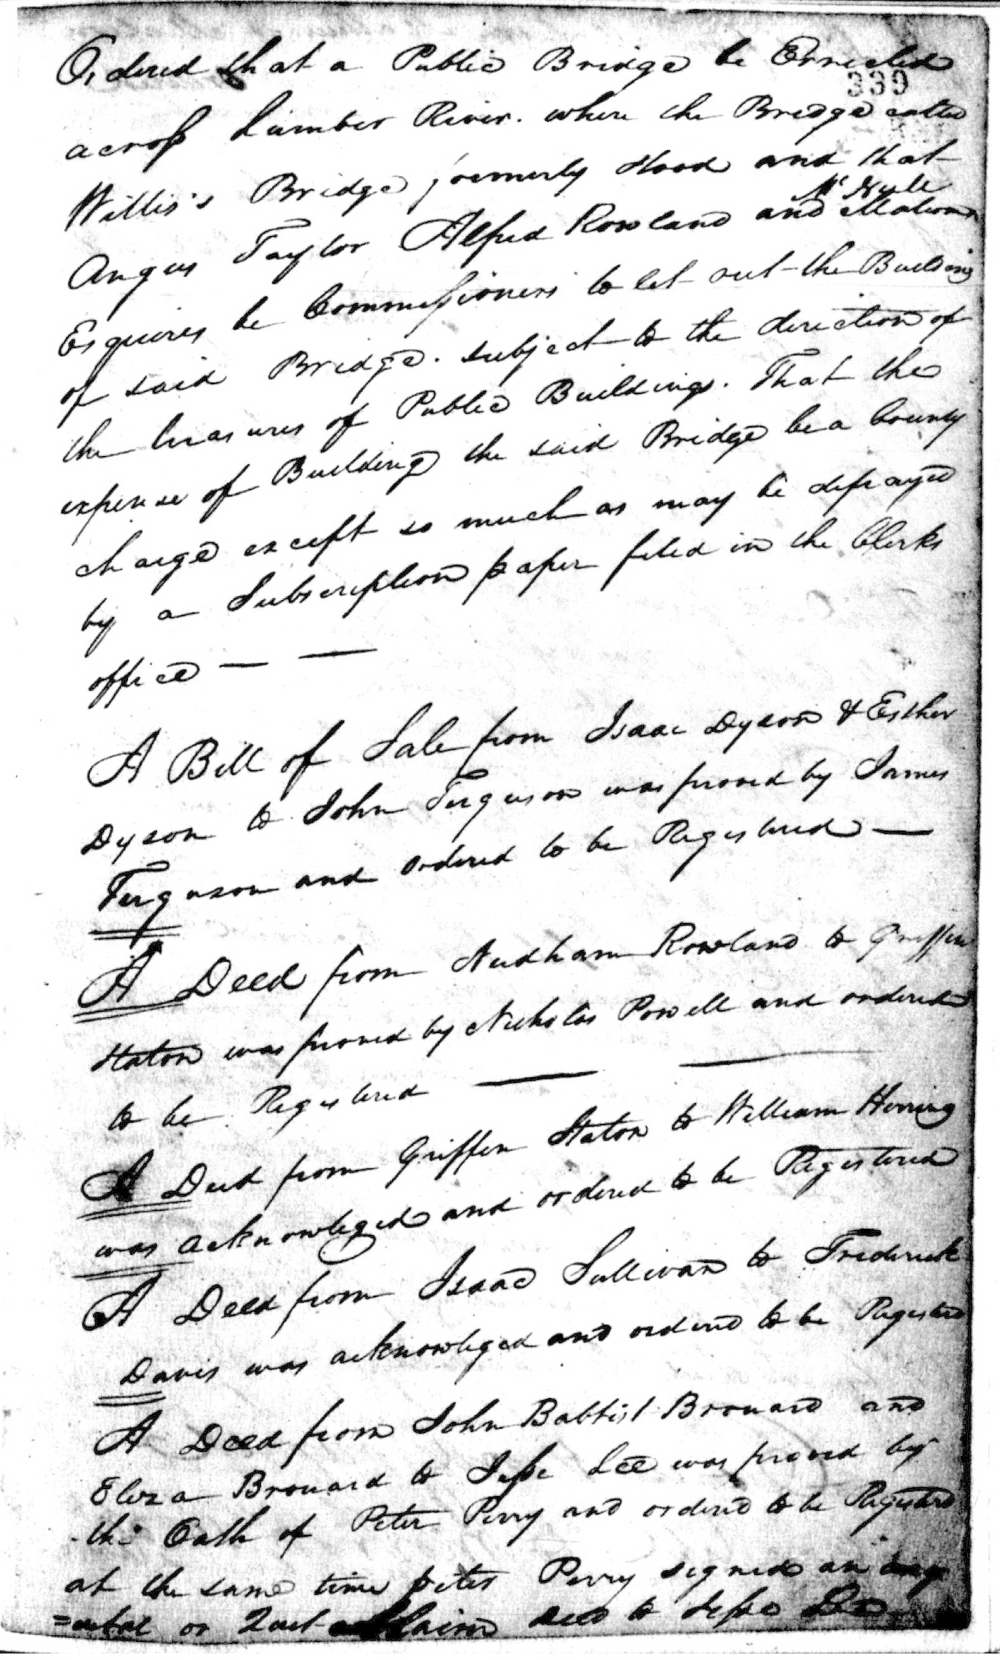 Ordered that a Public Bridge be Errected
339
across Lumber River. where the Bridge called
Willis's Bridge formerly stood and that
Angus Taylor Alfred Rowland and Malcom
Esquires be Commissioners to let out the Building
of said Bridge. subject to the direction of
the treasurer of Public Buildings. That the
expense of Building the said Bridge be a County
charge except so much as may be defrayed
by a Subscription paper filed in the Clerks
office — —
A Bill of Sale from Isaac Dyson & Esther
Dyson to John Ferguson was proved by James
Ferguson and ordered to be Registered —
A Deed from Needham Rowland to Griffin
Staton was proved by Nicholas Powell and ordered
to be Registered — —
A Deed from Griffin Staton to William Herring
was acknowleged and ordered to be Registered
A Deed from Isaac Sullivan to Frederick
Davis was acknowleged and ordered to be Registerd
A Deed from John Babtist Brouard and
Eliza Brouard to Jesse Lee was proved by
the Oath of Peter Perry and ordered to be Registerd
at the same time peter Perry signed an
or Quit Claim deed to Jesse Lee